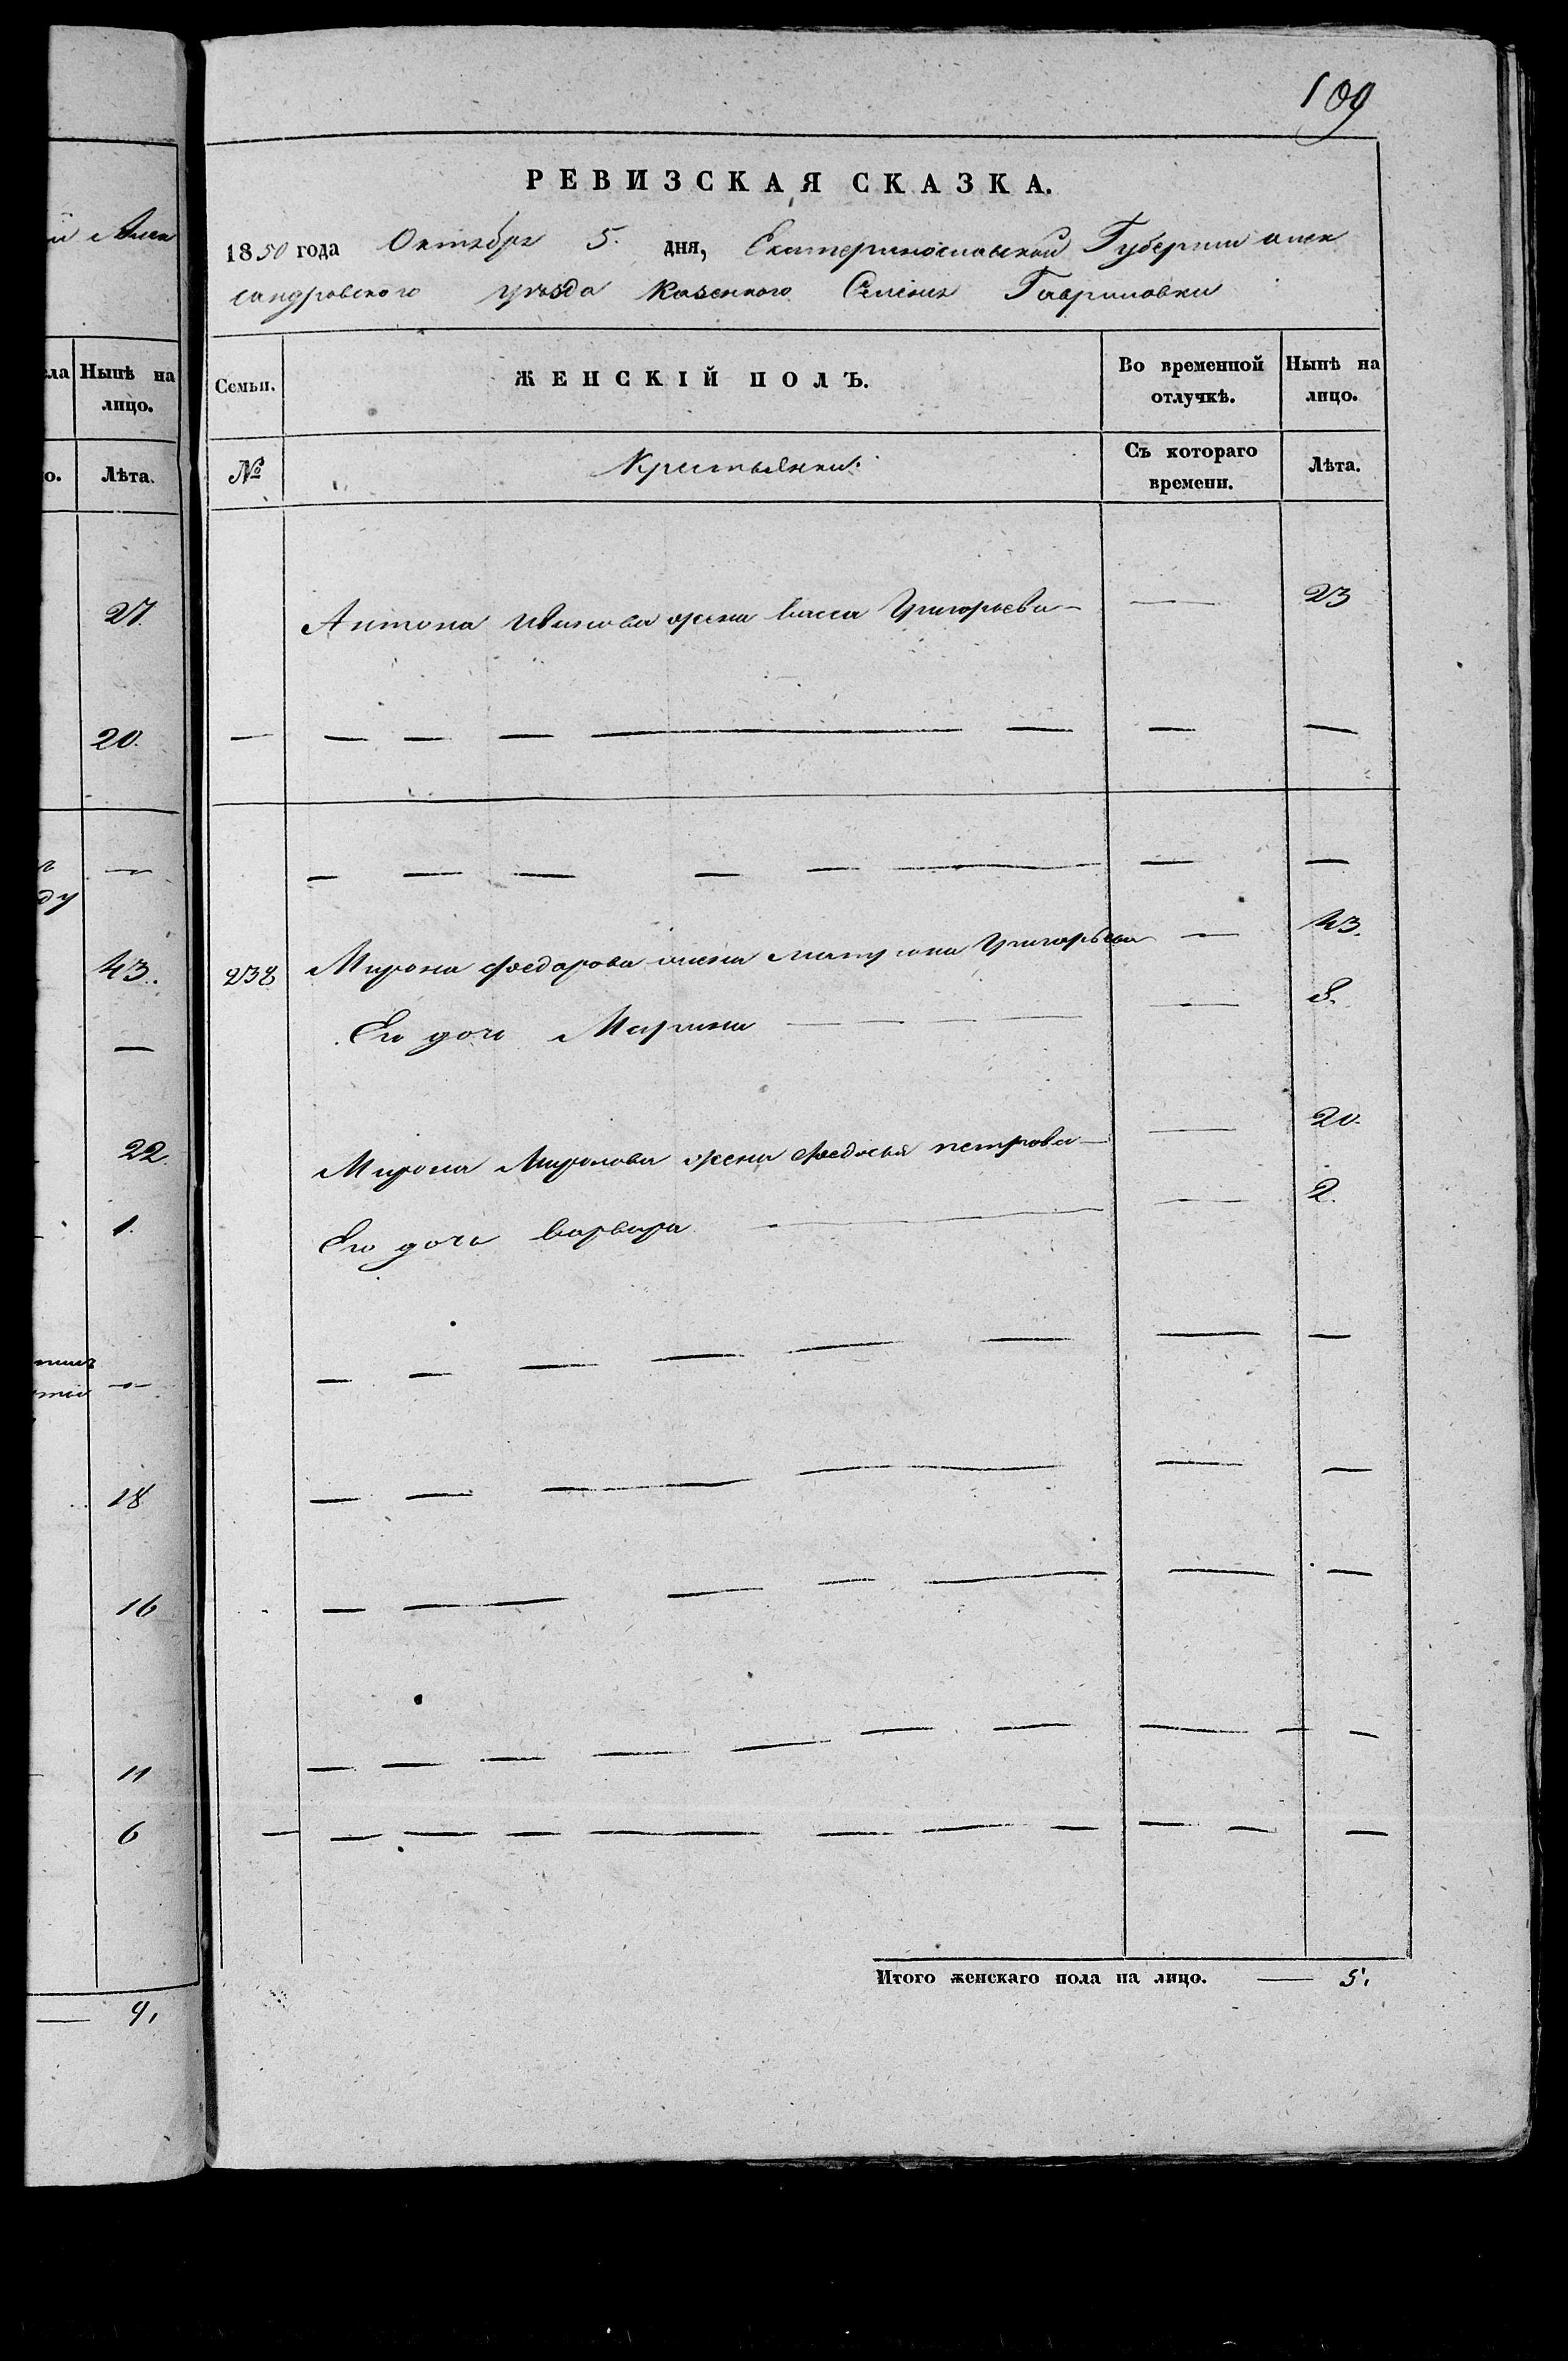 й Алек
ла Нынѣ на
лицо.
о. Лѣта.
27.
20.
ду
43.
22.
1.
18
16
11
6
9,
109
РЕВИЗСКАЯ СКАЗКА.
1850 года Октября 5. дня, Екатеринославской Губернии алек
сандровского уѣзда Казенного Селения Гавриловки
Семьи. ЖЕНСКІЙ ПОЛЪ. Во временной отлучкѣ. Нынѣ на лицо.
№ Крестьянки. Съ котораго времени. Лѣта.
Антона Иванова жена васса Григорьева — — 23
238 Мирона Федорова жена Григорьева — 43.
Его дочь Марина — — 8.
Мирона Миронова жена Федосья петрова — — 20.
Его дочь варвара — — 2.
Итого женскаго пола на лицо. — 5.